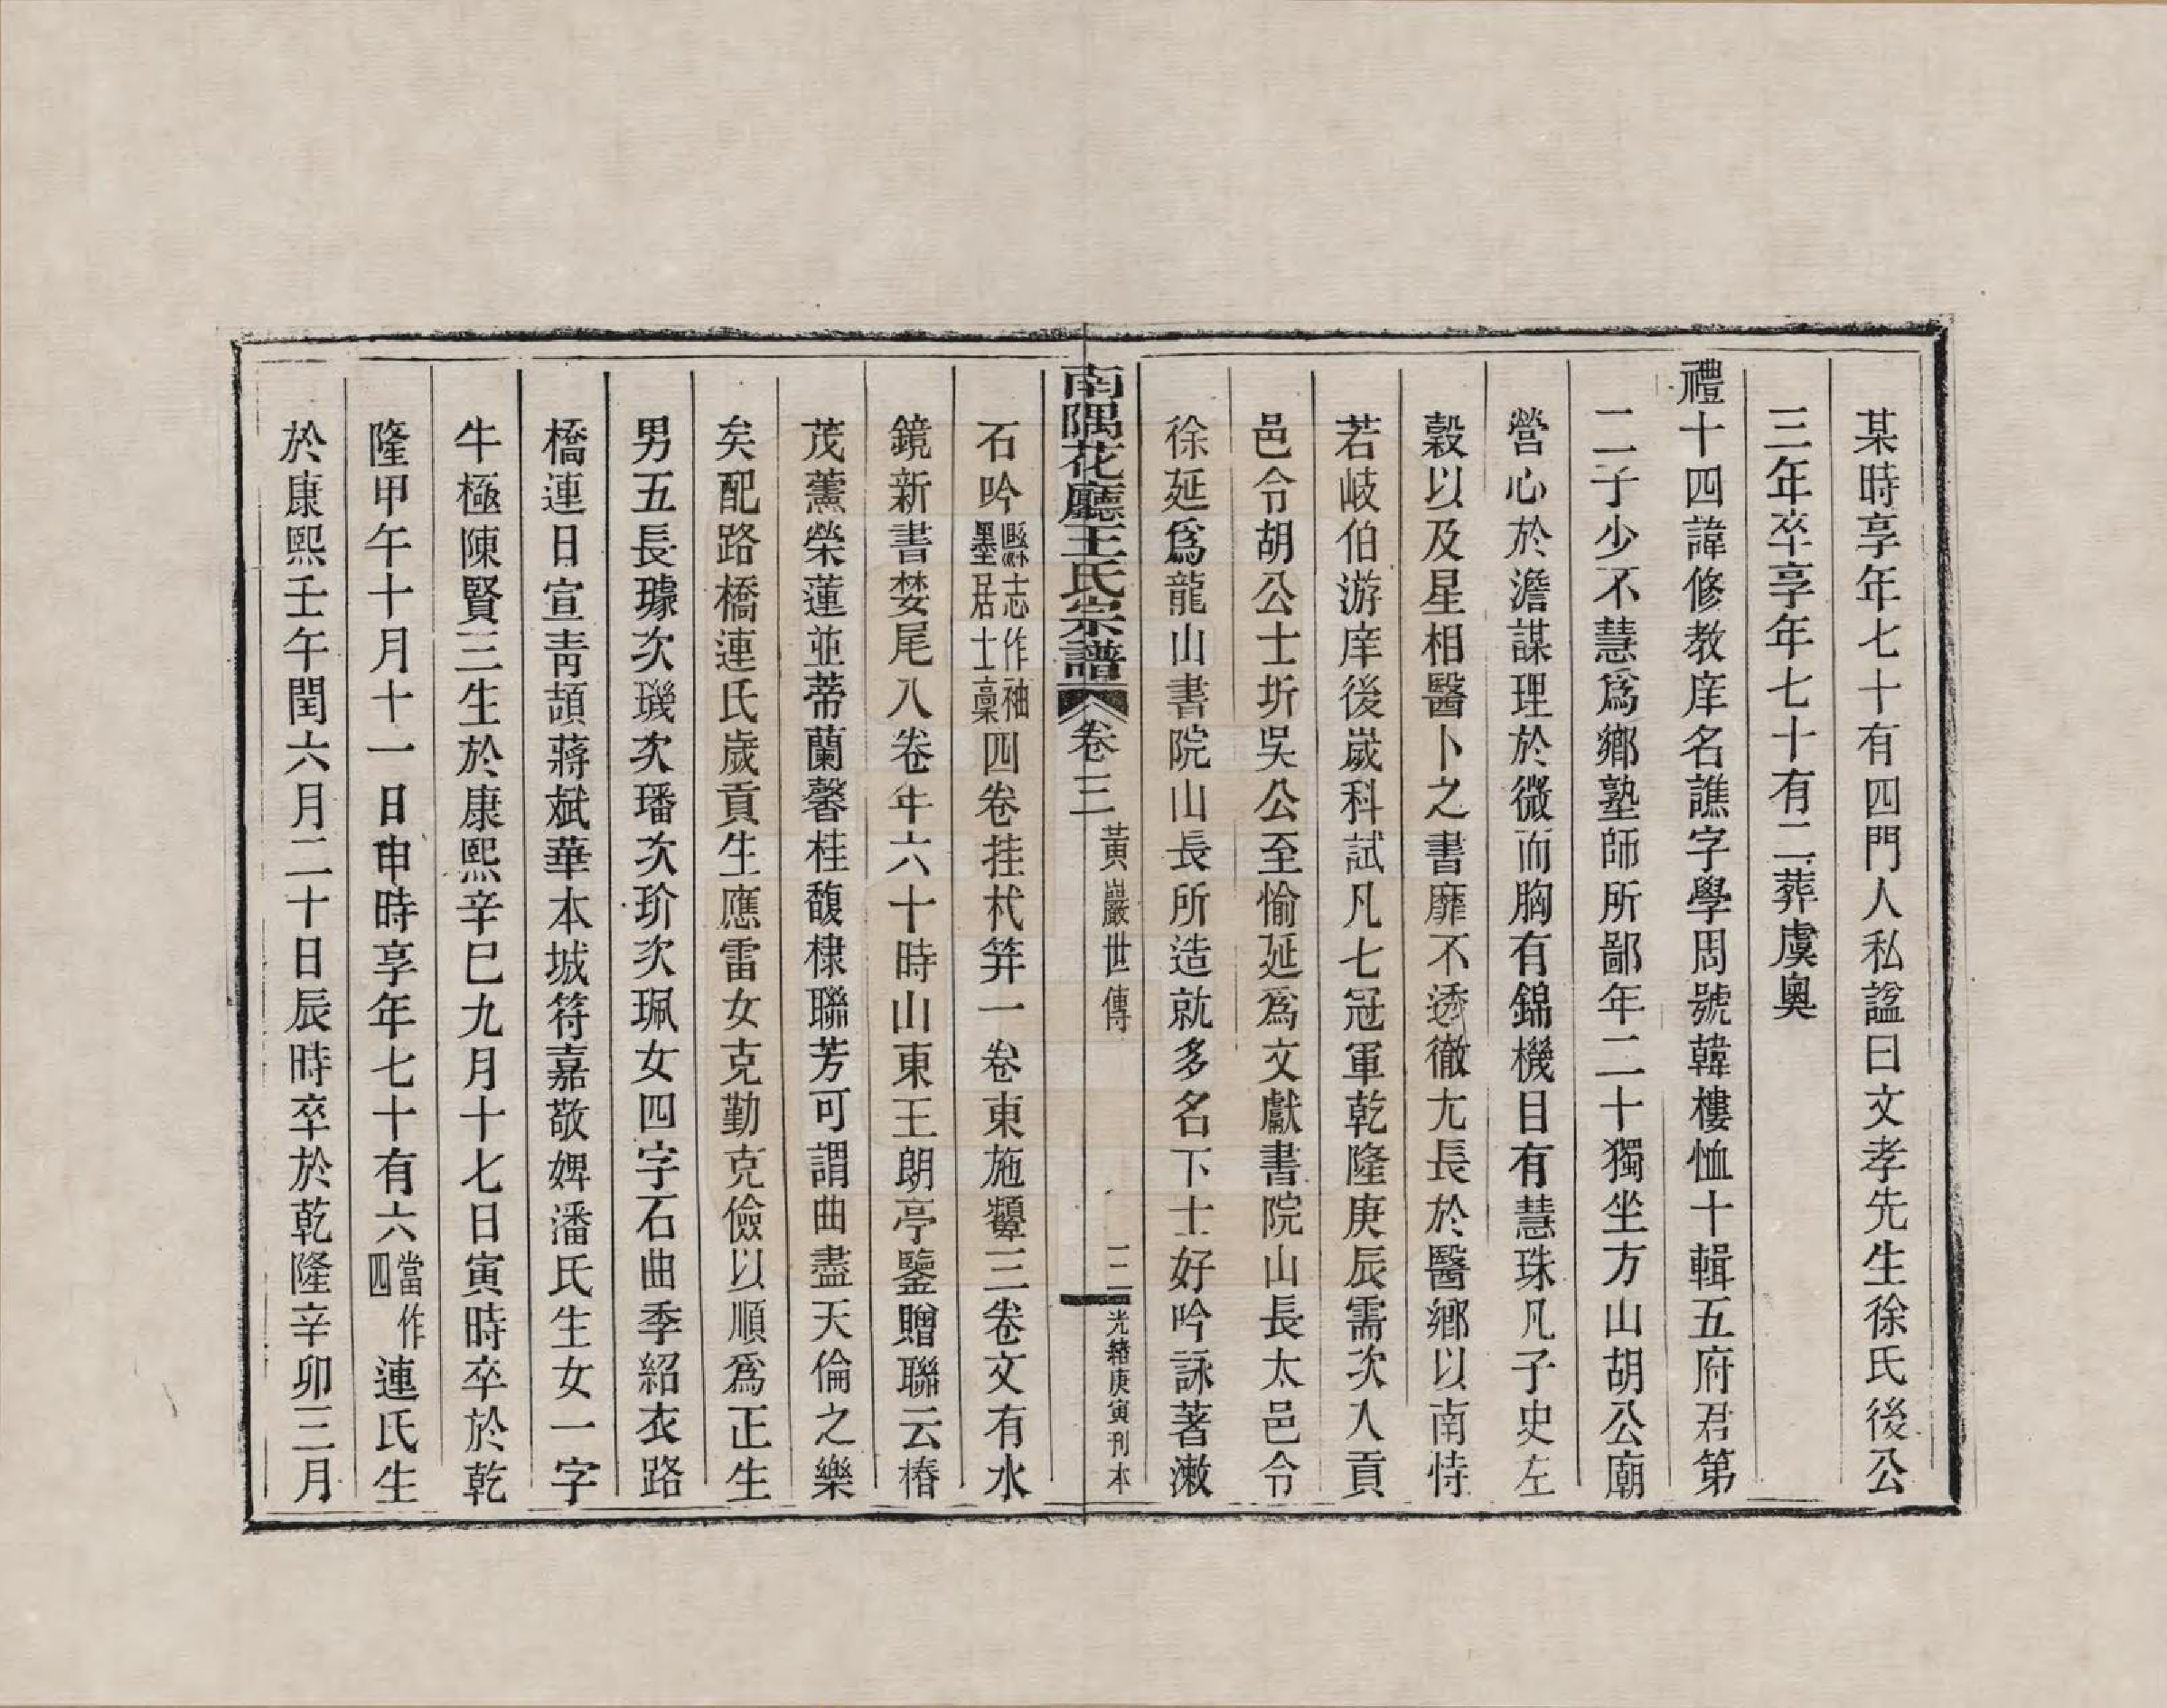 某時享年七十有四門人私諡曰文孝先生徐氏後公
三年卒享年七十有二葬虞奧
禮十四諱修教庠名譙字學周號韓樓恤十輯五府君第
二子少不慧爲鄉塾師所鄙年二十獨坐方山胡公廟
營心於澹謀理於微而胸有錦機日有慧珠凡子史左
穀以及星相醫卜之書靡不透徹尢長於醫鄉以南恃
若岐伯游庠後崴科試凡七冠軍乾隆庚辰需次入貢
邑令胡公士圻吳公至愉延爲文獻書院山長太邑令
徐延爲龍山書院山長所造就多名下士好吟詠著漱
南隅花廳王氏宗譜 卷三 黃巖世傳 三 光緖庚寅刊本
石吟縣志作袖墨居士稾四卷挂杙笄一卷東施顰三卷文有水
鏡新書婪尾八卷年六十時山東王朗亭鑒贈聯云椿
茂蘐榮蓮並蒂蘭馨桂馥棣聯芳可謂曲盡天倫之樂
矣配路橋連氏歲貢生應雷女克勤克儉以順爲正生
男五長璩次璣次璠次玠次珮女四字石曲季紹衣路
橋連日宣靑頡蔣斌華本城符嘉敬婢潘氏生女一字
牛極陳賢三生於康熙辛巳九月十七日寅時卒於乾
隆甲午十月十一日申時享年七十有六當作四連氏生
於康熙壬午閏六月二十日辰時卒於乾隆辛卯三月